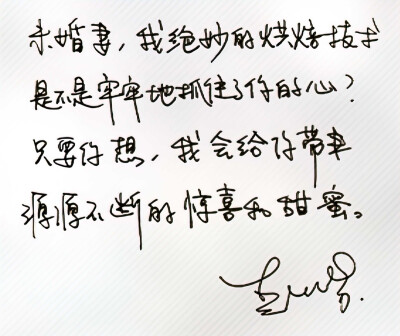 未婚妻，我绝妙的烘焙技术
是不是牢牢地抓住了你的心？
只要你想，我会给你带来
源源不断的惊喜和甜蜜。